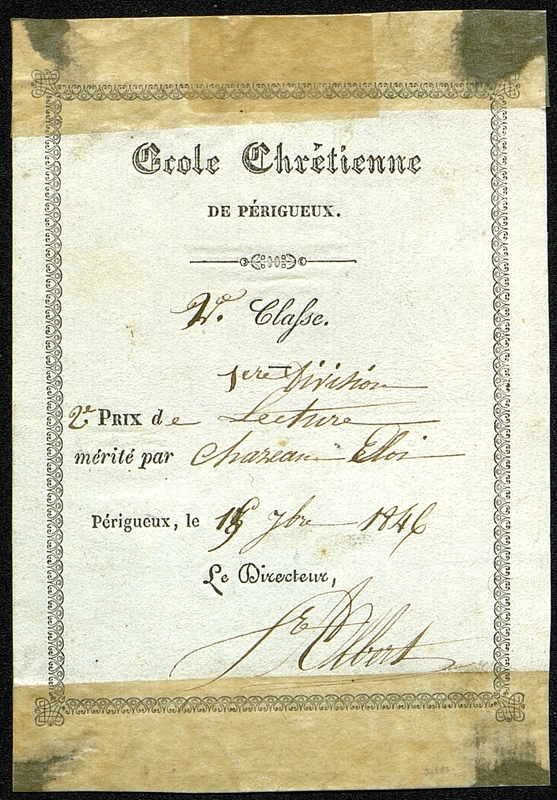 Ecole Chrétienne
DE PÉRIGUEUX.
2e. Classe.
1ere Division
2e PRIX de Lecture
mérité par Chazeau Eloi
Périgueux, le 7bre 1846
Le Directeur,
Albert